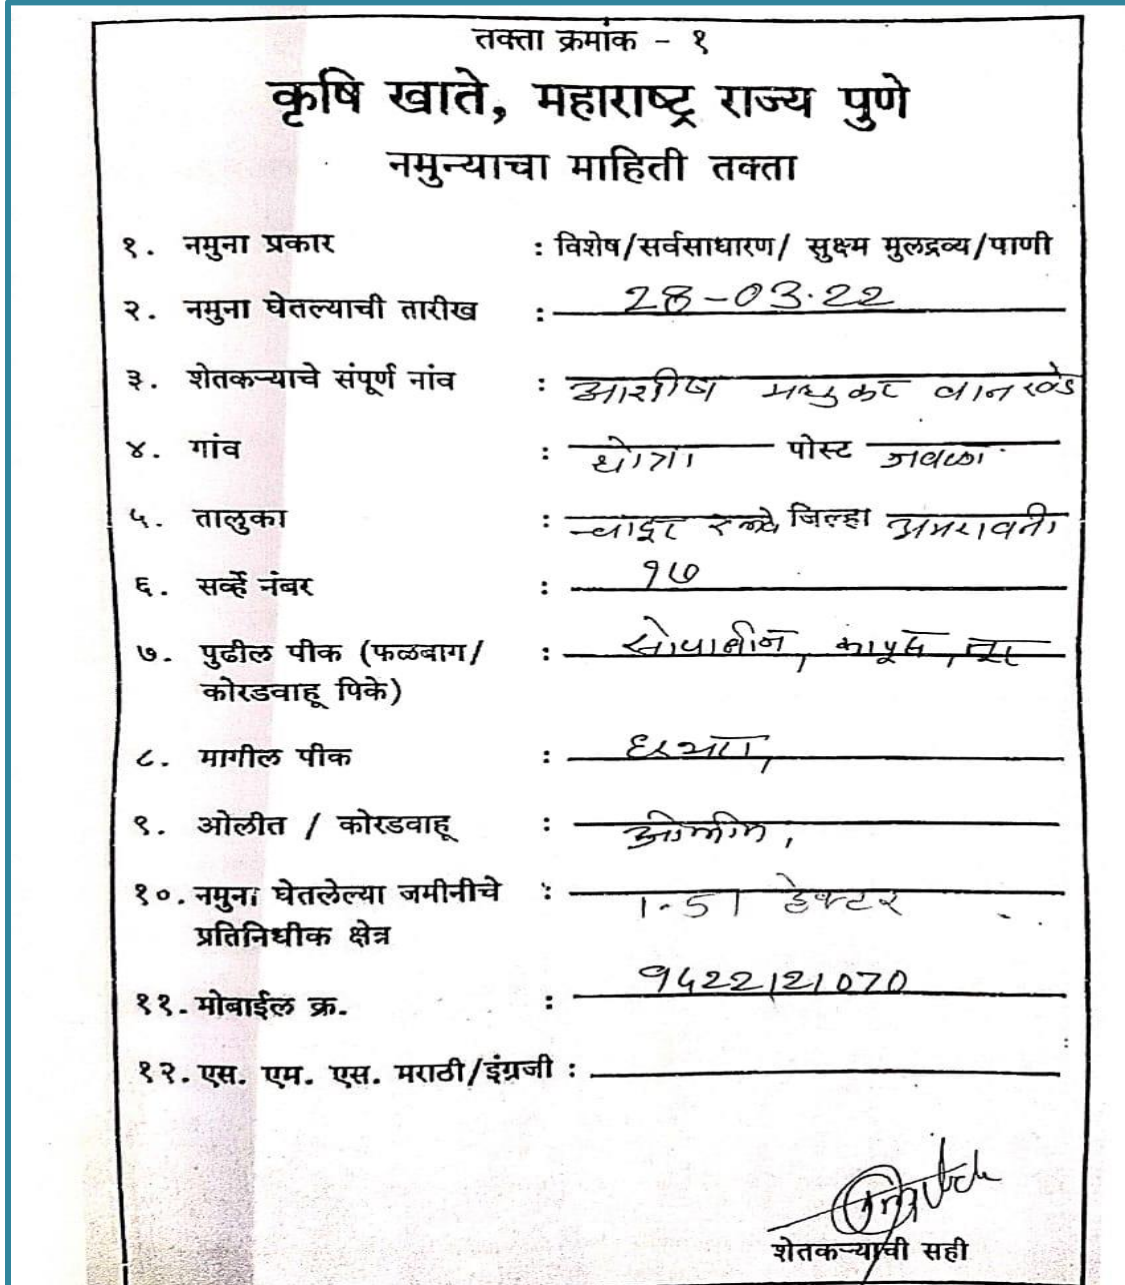 तक्ता क्रमांक - १
कृषि खाते, महाराष्ट्र राज्य पुणे
नमुन्याचा माहिती तक्ता
१. नमुना प्रकार : विशेष/सर्वसाधारण/ सुक्ष्म मुलद्रव्य/पाणी
२. नमुना घेतल्याची तारीख : 28-03.22
३. शेतकऱ्याचे संपूर्ण नांव : आशीष मधुकर वानखडे
४. गांव : पोस्ट जवळा
५. तालुका : चांदूर रेल्वे जिल्हा अमरावती
६. सर्व्हे नंबर : १७
७. पुढील पीक (फळबाग/ : सोयाबीन, कापूस, तूर
कोरडवाहू पिके)
८. मागील पीक :
९. ओलीत / कोरडवाहू : ओलीत,
१०. नमुना घेतलेल्या जमीनीचे : 1.51 हेक्टर
प्रतिनिधीक क्षेत्र
११. मोबाईल क्र. : 9422121070
१२. एस. एम. एस. मराठी/इंग्रजी :
शेतकऱ्याची सही